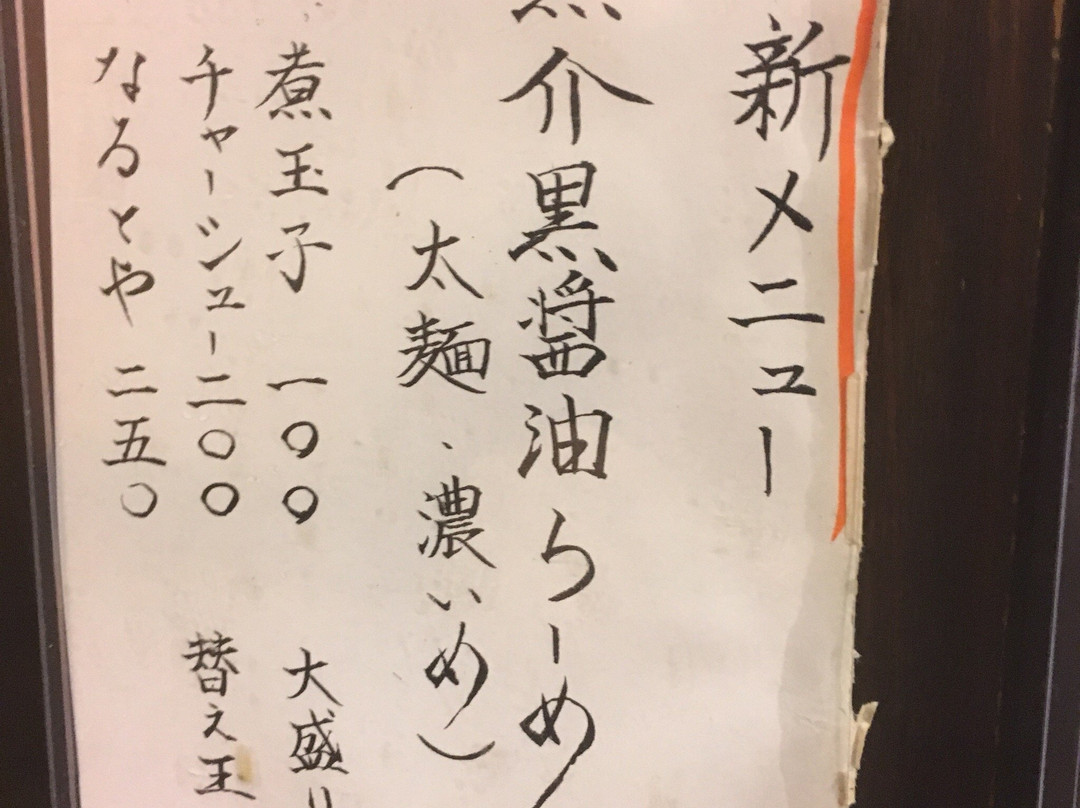 新メニュー
介黒醤油らーめ
(太麺、濃いめ)
煮玉子 一〇〇 大盛り
チャーシュー二〇〇 替え玉
なるとや 二五〇